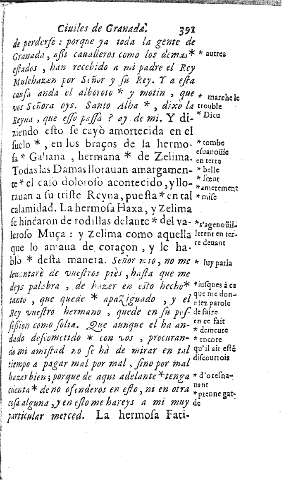 Ciuiles de Granada. 391
de perderse: porque ya toda la gente de
Granada, assi caualleros como los demas *
estados, han recebido a mi padre el Rey
Mulehazen por Señor y su Rey. Y a esta
causa anda el alboroto * y motin, que
vos Señora oys. Santo Alha *, dixo la
Reyna, que esso passa? ay de mi. Y di-
ziendo esto se cayò amortecida en el
suelo *, en los braços de la hermo-
sa * Galiana, hermana * de Zelima.
Todas las Damas llorauan amargamen-
te * el caso doloroso acontecido, y llo-
rauan a su triste Reyna, puesta * en tal
calamidad. La hermosa Haxa, y Zelima
se hincaron de rodillas delante * del va-
leroso Muça: y Zelima como aquella
que lo amaua de coraçon, y le ha-
blo * desta manera. Señor mio, no me
leuantarè de vuestros pies, hasta que me
deys palabra, de hazer en este hecho *
tanto, que quede * apaziguado, y el
Rey vuestro hermano, quede en su pos-
session como solia. Que aunque el ha an-
dado descomedido * con vos, procuran-
do mi amistad no se hà de mirar en tal
tiempo a pagar mal por mal, sino por mal
hazer bien; porque de aqui adelante * tenga
cuenta * de no ofenderos en esto, ni en otra
cosa alguna, y en esto me hareys a mi muy
particular merced. La hermosa Fati-
* autres
* marche le
trouble
* Dieu
* tombe
esuanouïe
en terre
* belle
* sœur
* amerement
* mise
* s'agenouïl-
lerent en ter-
re deuant
* luy parla
* iusques à ce
que me don-
niez parole
de faire
en ce fait
* demeure
* encore
qu'il ait esté
discourtois
* d'oresna-
uant
* prenne gar-
de